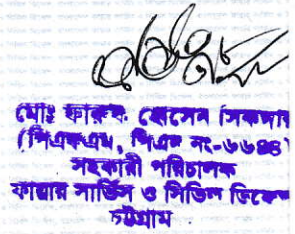 মোঃ ফারুক হোসেন সিকদার
(পিএফএম, পিএল নং-৬৬৪
সহকারী পরিচালক
ফায়ার সার্ভিস ও সিভিল ডিফেন্স
চট্টগ্রাম